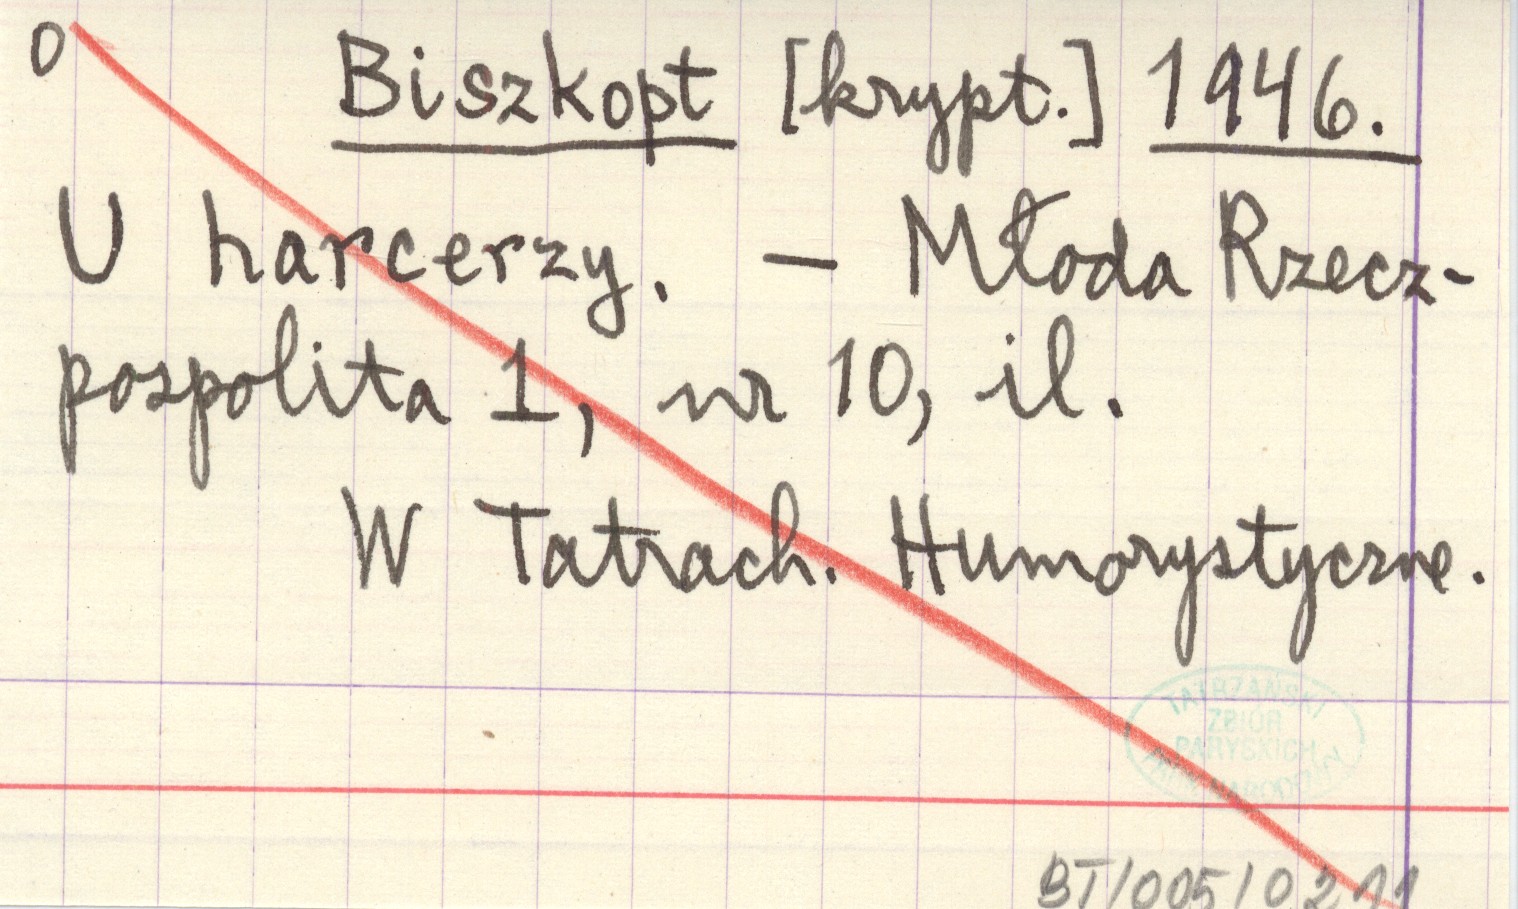 0 Biszkopt [krypt.] 1946.
U harcerzy. – Młoda Rzecz-
pospolita 1, nr 10, il.
W Tatrach. Humorystyczne.
TATRZAŃSKI
ZBIÓR
PARYSKICH
PARK NARODOWY
BT/005/0211